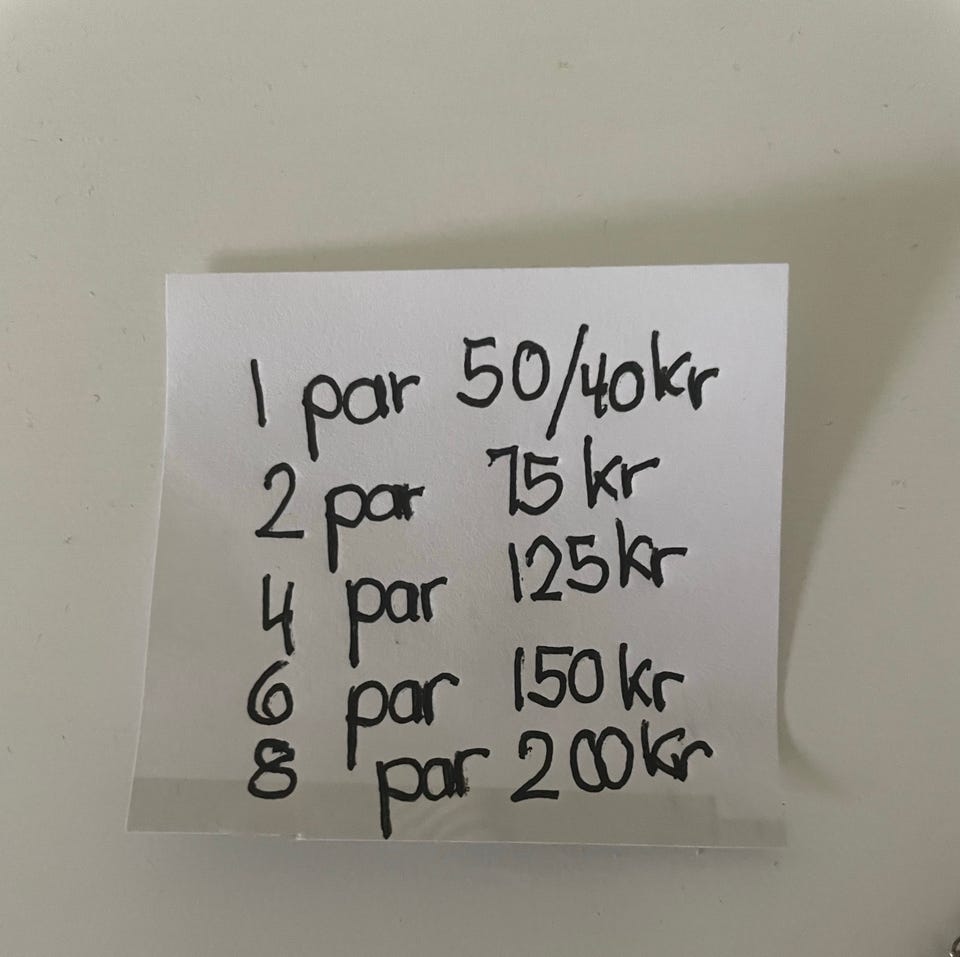 1 par 50/40kr
2 par 75 kr
4 par 125kr
6 par 150kr
8 par 200kr